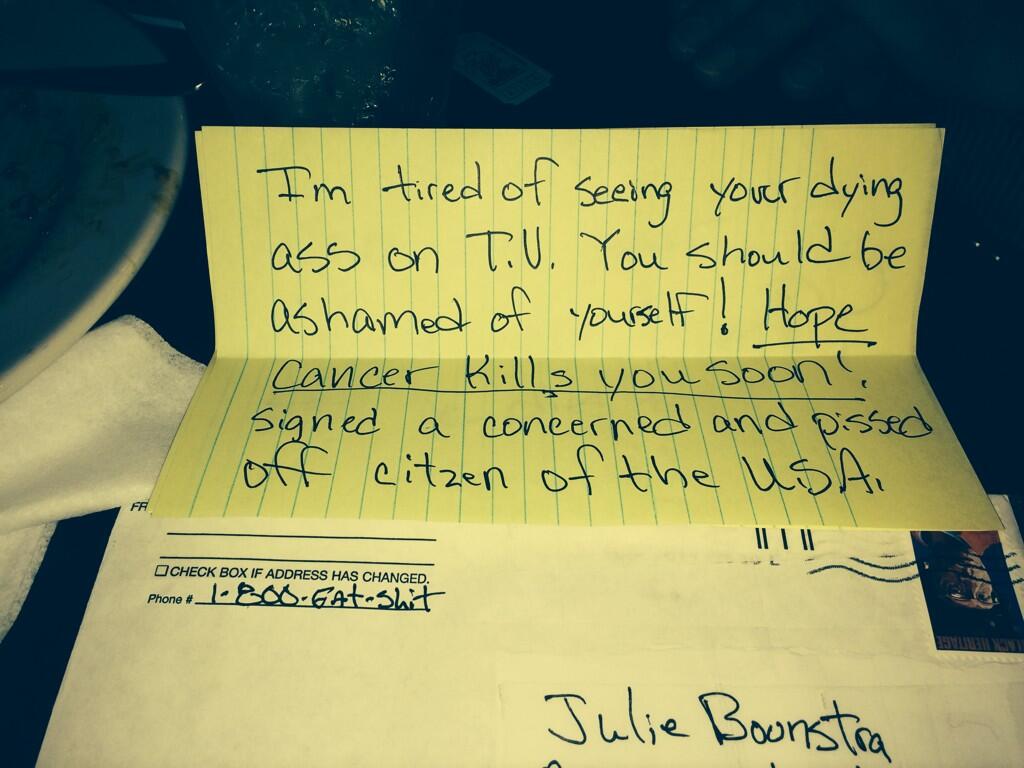 I'm tired of seeing your dying
ass on T.V. You should be
ashamed of yourself! Hope
Cancer Kills you soon!
signed a concerned and pissed
off citzen of the U.S.A.
FR
CHECK BOX IF ADDRESS HAS CHANGED.
Phone # 1-800-EAT-Shit
LACK HERITAGE
Julie Boonstra